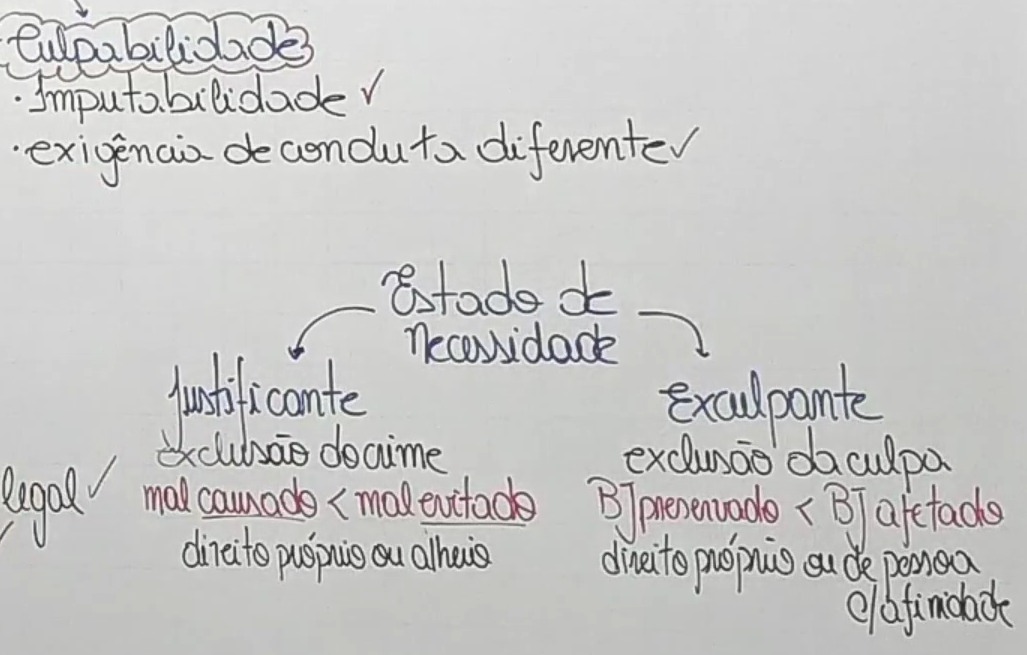 Culpabilidade
· Imputabilidade ✓
· exigência de conduta diferente ✓
Estado de
necessidade
Justificante
exclusão do crime
legal ✓
mal causado < mal evitado
direito próprio ou alheio
Exculpante
exclusão da culpa
BJ preservado < BJ afetado
direito próprio ou de pessoa
c/ afinidade